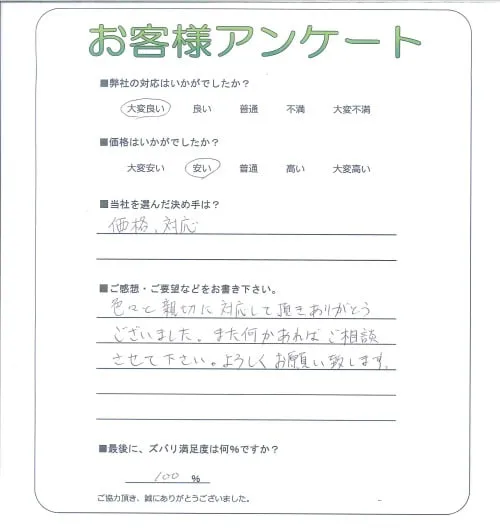 お客様アンケート
■弊社の対応はいかがでしたか？
大変良い 良い 普通 不満 大変不満
■価格はいかがでしたか？
大変安い 安い 普通 高い 大変高い
■当社を選んだ決め手は？
価格、対応
■ご感想・ご要望などをお書き下さい。
色々と親切に対応して頂きありがとう
ございました。また何かあればご相談
させて下さい。よろしくお願い致します。
■最後に、ズバリ満足度は何％ですか？
100 ％
ご協力頂き、誠にありがとうございました。